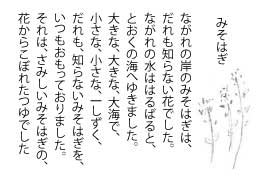 みそはぎ
ながれの岸のみそはぎは、
だれも知らない花でした。
ながれの水ははるばると、
とおくの海へゆきました。
大きな、大きな、大海で、
小さな、小さな、一しずく、
だれも、知らないみそはぎを、
いつもおもっておりました。
それは、さみしいみそはぎの、
花からこぼれたつゆでした